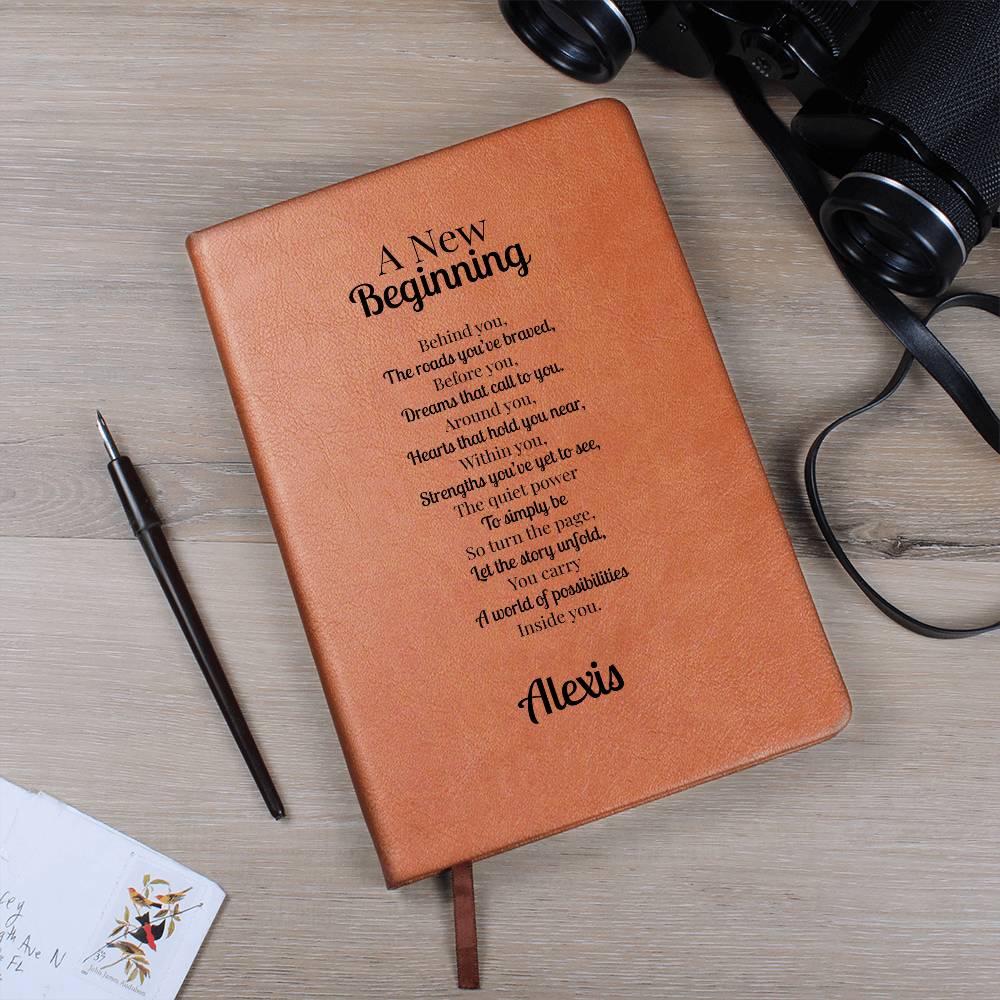 A New
Beginning
Behind you,
The roads you've braved,
Before you,
Dreams that call to you.
Around you,
Hearts that hold you near,
Within you,
Strengths you've yet to see,
The quiet power
To simply be
So turn the page,
Let the story unfold,
You carry
A world of possibilities
Inside you.
Alexis
Ave N
FL
37
John James Audubon